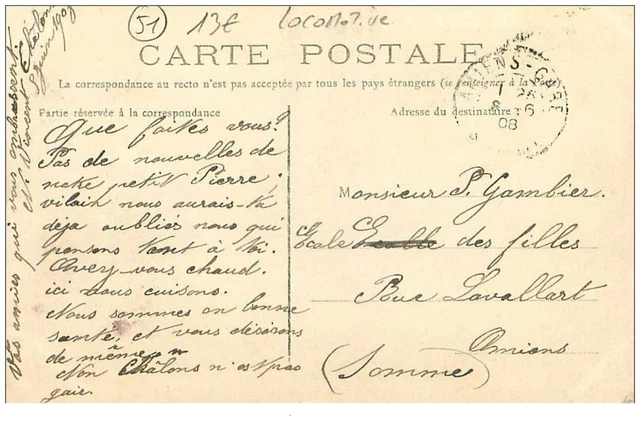 51 13€ LOCOMOTIVE
CARTE POSTALE
La correspondance au recto n'est pas acceptée par tous les pays étrangers (se renseigner à la Poste)
Partie réservée à la correspondance
Que faites vous?
Pas de nouvelles de
notre petit Pierre,
vilain nous aurais-tu
déja oubliés nous qui
pensons tant à toi.
Avez-vous chaud.
ici nous cuisons.
Nous sommes en bonne
santé, et vous désirons
de même.
Non Châlons n'est pas
gaie.
Vos amies qui vous embrassent
Châlons
8 juin 190
AMIENS-GARE
8-6
08
Adresse du destinataire
Monsieur P. Gambier.
Ecole des filles
Rue Lavallart
Amiens
(Somme)